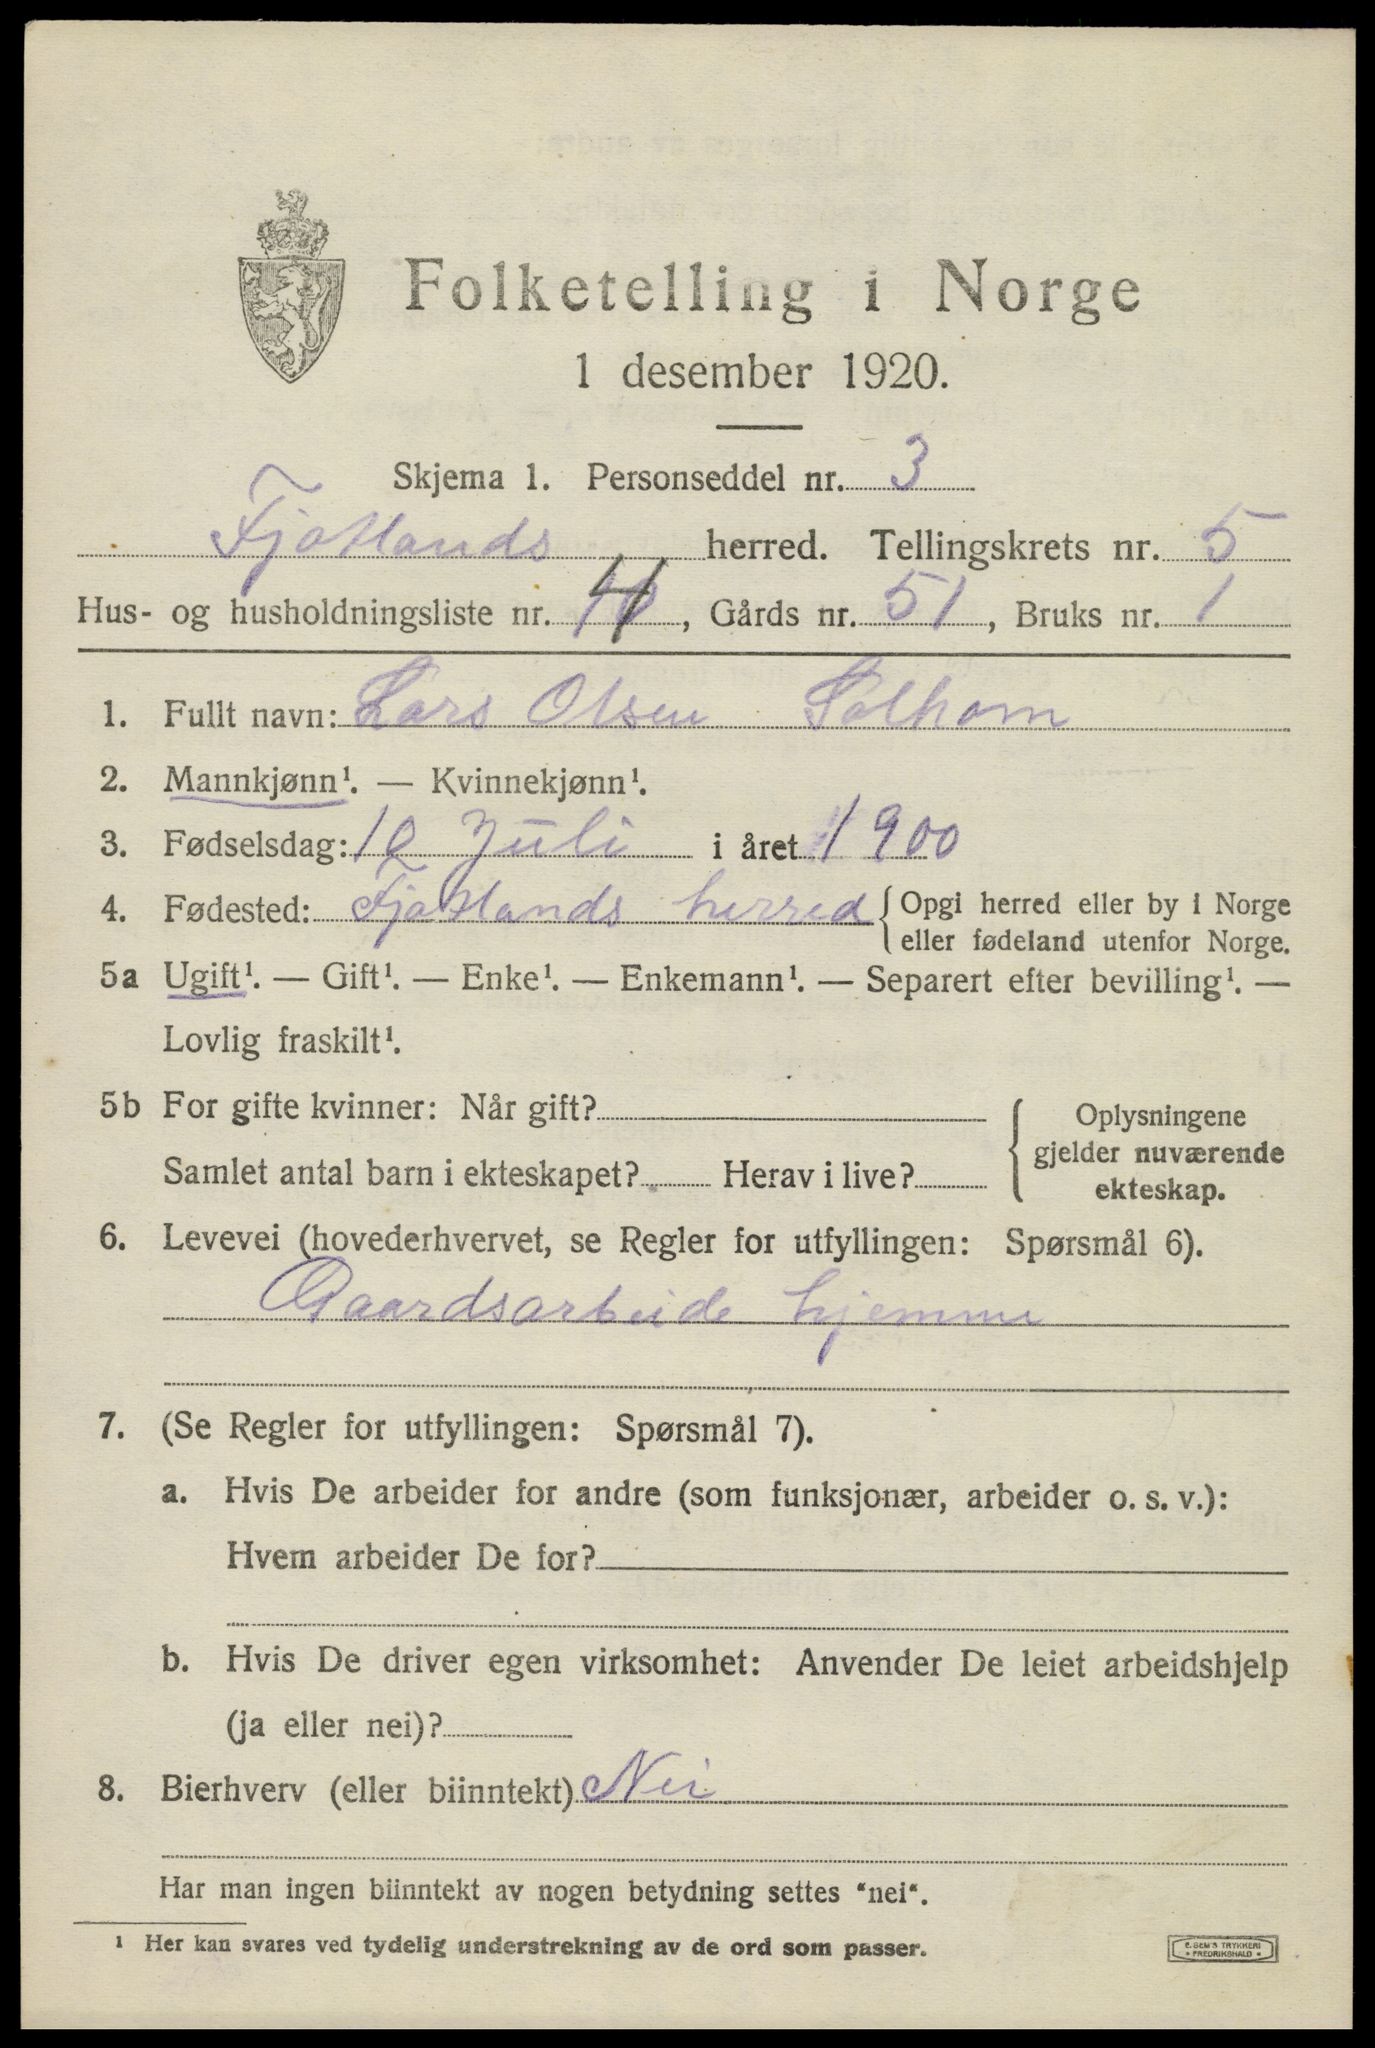 Folketelling i Norge
1 desember 1920.
Skjema 1. Personseddel nr. 3
Fjotlands herred. Tellingskrets nr. 5
Hus- og husholdningsliste nr. 4, Gårds nr. 51, Bruks nr. 1
1. Fullt navn: Lars Olsen Solhom
2. Mannkjønn¹. — Kvinnekjønn¹.
3. Fødselsdag: 10 Juli i året 1900
4. Fødested: Fjotlands herred { Opgi herred eller by i Norge
eller fødeland utenfor Norge.
5a Ugift¹. — Gift¹. — Enke¹. — Enkemann¹. — Separert efter bevilling¹. —
Lovlig fraskilt¹.
5b For gifte kvinner: Når gift?
Samlet antal barn i ekteskapet? Herav i live?
{ Oplysningene
gjelder nuværende
ekteskap.
6. Levevei (hovederhvervet, se Regler for utfyllingen: Spørsmål 6).
Gaardsarbeide hjemme
7. (Se Regler for utfyllingen: Spørsmål 7).
a. Hvis De arbeider for andre (som funksjonær, arbeider o. s. v.):
Hvem arbeider De for?
b. Hvis De driver egen virksomhet: Anvender De leiet arbeidshjelp
(ja eller nei)?
8. Bierhverv (eller biinntekt) Nei
Har man ingen biinntekt av nogen betydning settes "nei".
¹ Her kan svares ved tydelig understrekning av de ord som passer.
E. SEM'S TRYKKERI
• FREDRIKSHALD •